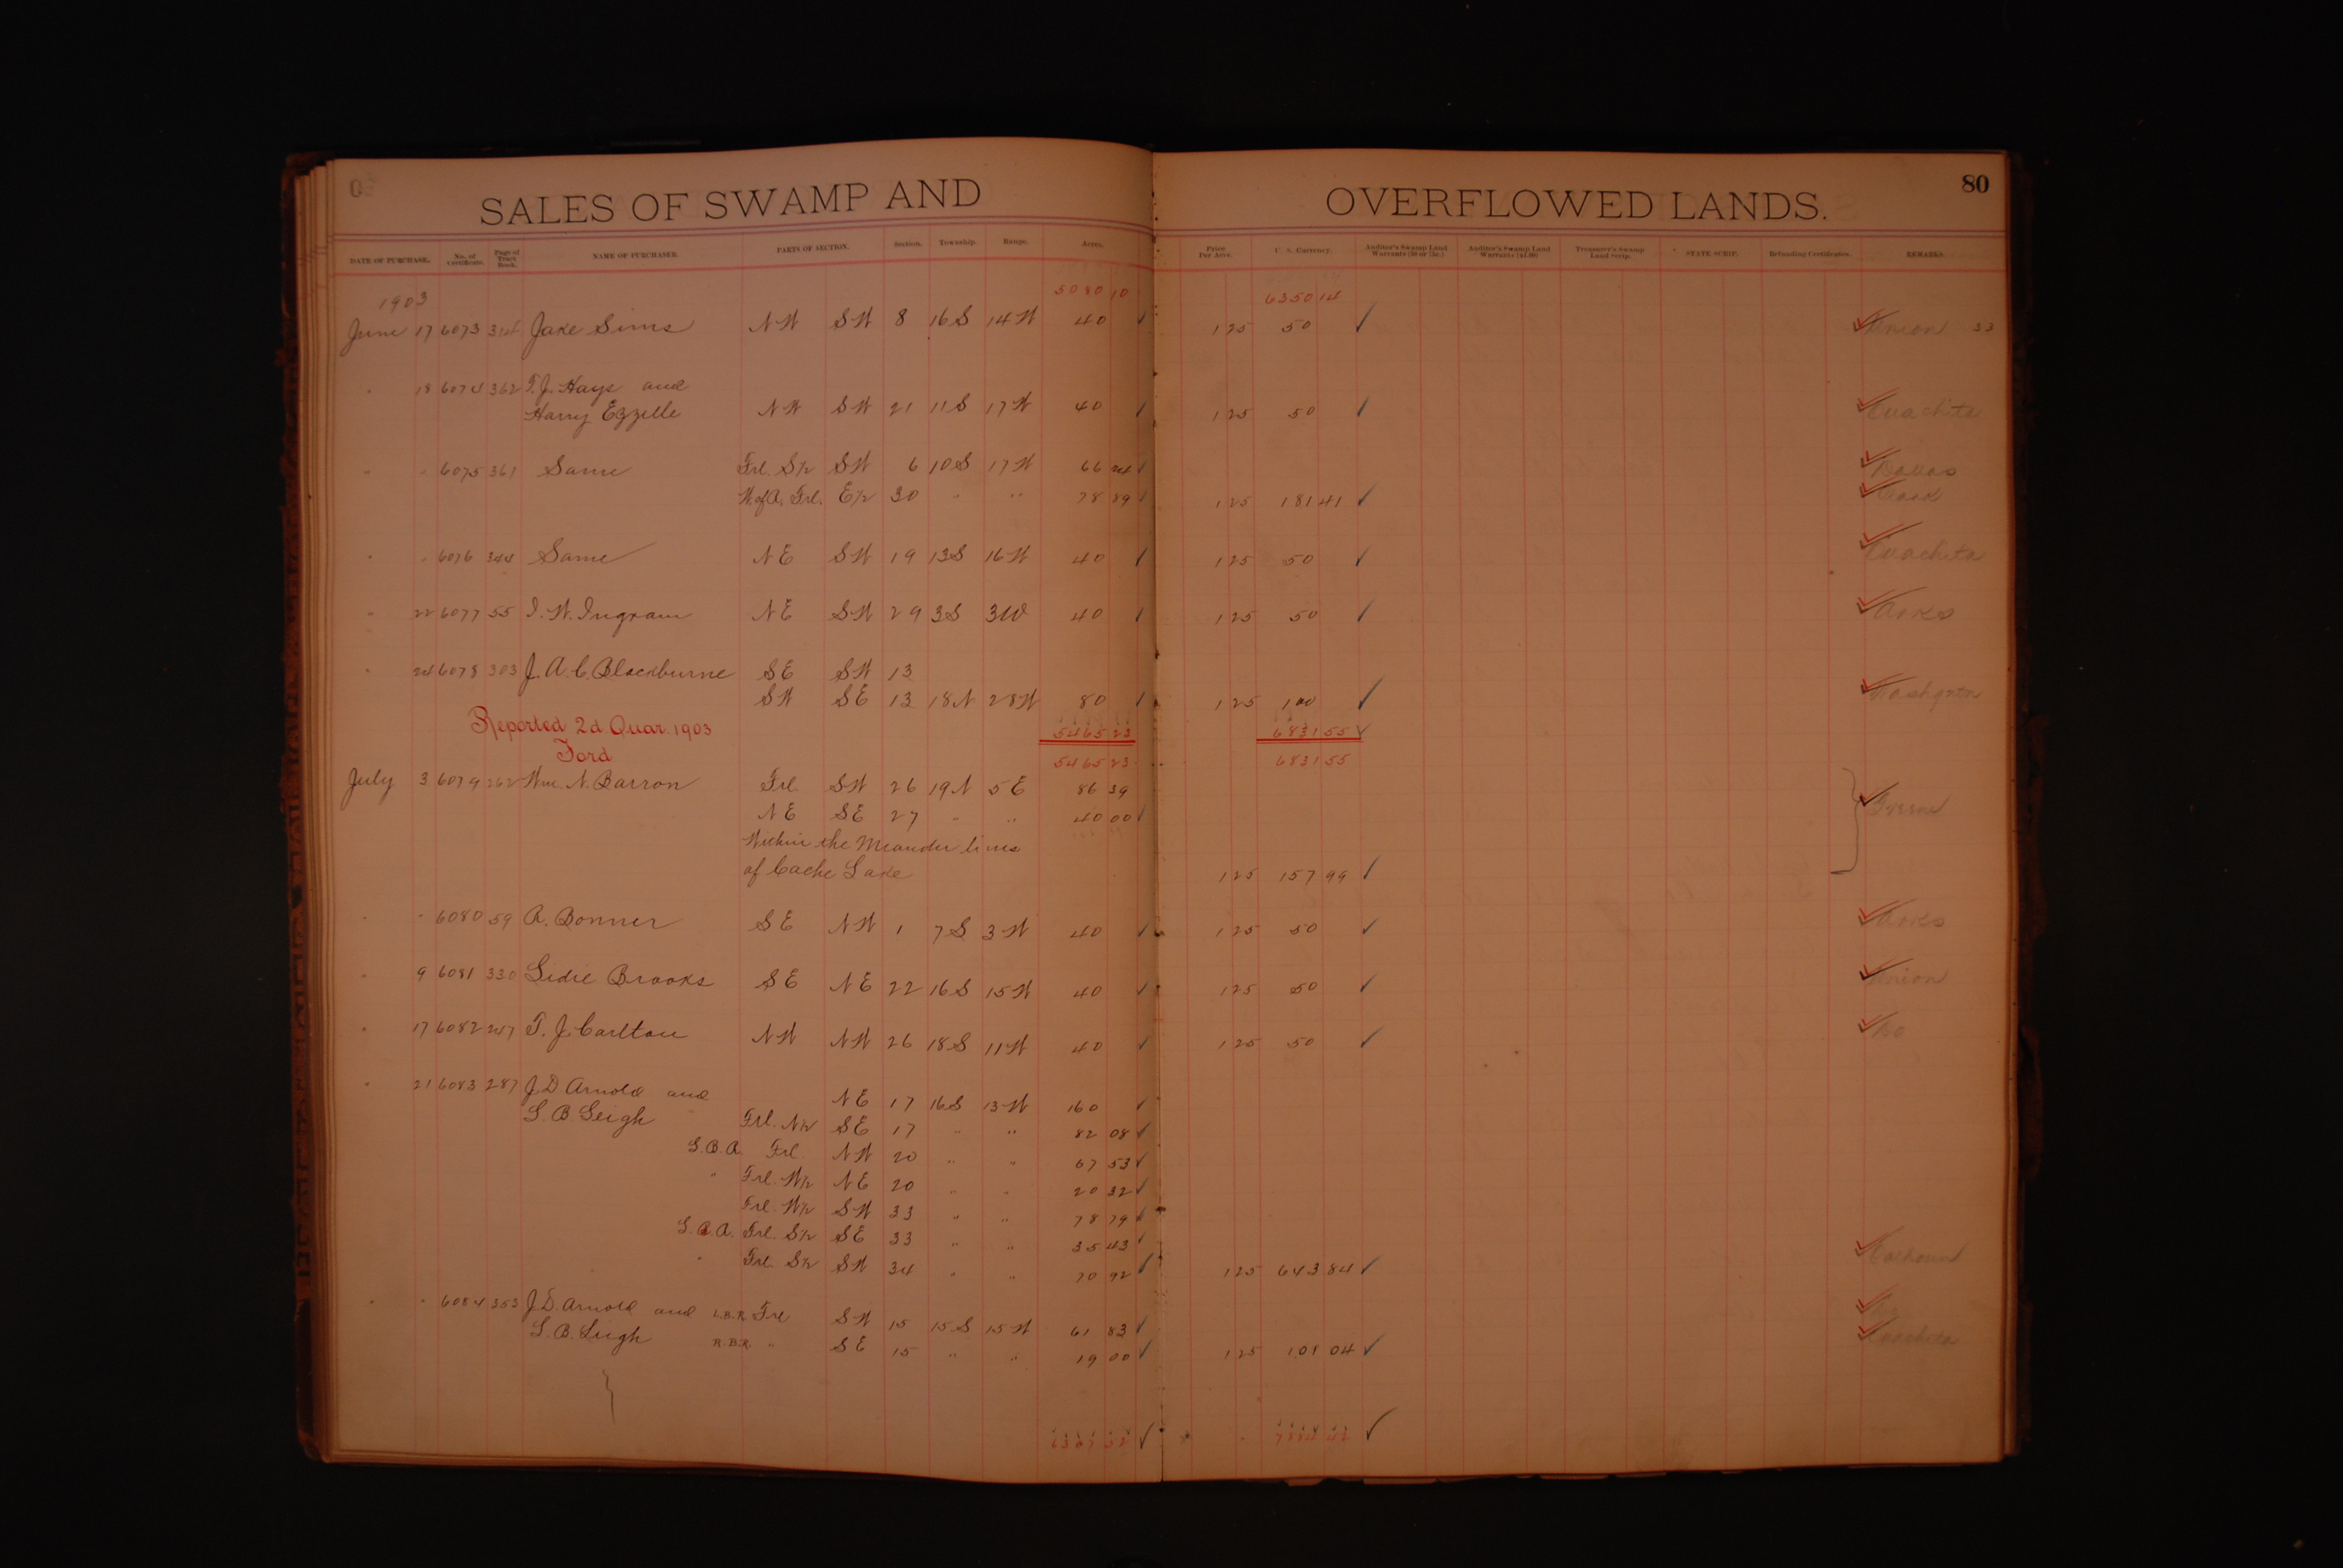 SALES OF SWAMP AND OVERFLOWED LANDS. 80
DATE OF PURCHASE. No. of Certificate. Page of Tract Book. NAME OF PURCHASER. PARTS OF SECTION. Section. Township. Range. Acres. Price Per Acre. U. S. Currency. Auditor's Swamp Land Warrants (50 or 75c.) Auditor's Swamp Land Warrants ($1.00) Treasurer's Swamp Land Scrip. STATE SCRIP. Refunding Certificates. REMARKS.
1903 5080 10 6350 14
June 17 6073 314 Jake Sims NW SW 8 16S 14W 40 ✓ 1 25 50 ✓ Union 33
" 18 6074 362 T. J. Hays and
Harry Ezzelle NW SW 21 11S 17W 40 ✓ 1 25 50 ✓ Ouachita
" " 6075 361 Same Frl. S½ SW 6 10S 17W 66 24 ✓ Dallas
W. of A. Frl. E½ 30 " " 78 89 ✓ 1 25 181 41 ✓ Clark
" " 6076 344 Same NE SW 19 13S 16W 40 ✓ 1 25 50 ✓ Ouachita
" 22 6077 55 I. W. Ingram NE SW 29 3S 3W 40 ✓ 1 25 50 ✓ Arks
" 24 6078 303 J. A. C. Blackburne SE SW 13
SW SE 13 18N 28W 80 ✓ 1 25 100 ✓ Washgton
Reported 2d. Quar. 1903 5465 23 6831 55 ✓
Ford 5465 23 6831 55
July 3 6079 262 Wm. N. Barron Frl. SW 26 19N 5E 86 39
NE SE 27 " " 40 00 ✓ Greene
Within the Meander lines
of Cache Lake 1 25 157 99 ✓
" " 6080 59 A. Bonner SE NW 1 7S 3W 40 ✓ 1 25 50 ✓ Arks
" 9 6081 330 Lidie Brooks SE NE 22 16S 15W 40 ✓ 1 25 50 ✓ Union
" 17 6082 247 T. J. Carlton NW NW 26 18S 11W 40 ✓ 1 25 50 ✓ Do
" 21 6083 287 J. D. Arnold and NE 17 16S 13W 160 ✓
L. B. Leigh Frl. N½ SE 17 " " 82 08 ✓
L.B.A. Frl. NW 20 " " 67 53 ✓
" Frl. W½ NE 20 " " 20 32 ✓
Frl. W½ SW 33 " " 78 79 ✓
L.B.A. Frl. S½ SE 33 " " 35 43 ✓
" Frl. S½ SW 34 " " 70 92 ✓ 1 25 643 84 ✓ Calhoun
" " 6084 353 J. D. Arnold and L.B.R. Frl SW 15 15S 15W 61 83 ✓
L. B. Leigh R.B.R. " SE 15 " " 19 00 ✓ 1 25 101 04 ✓ Ouachita
6307 52 ✓ 7884 42 ✓